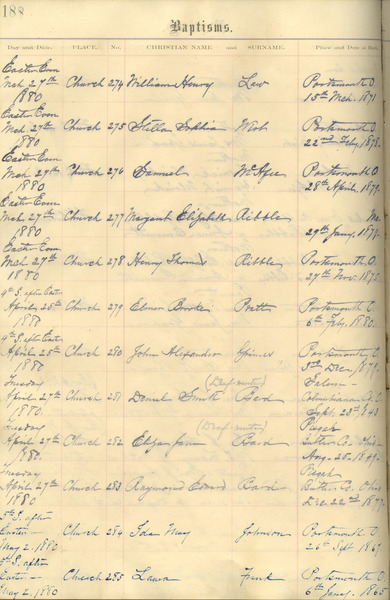 188
Baptisms.
Day and Date. PLACE. No. CHRISTIAN NAME and SURNAME. Place and Date of Birth
Easter Even
Mch 27th Church 274 William Henry Law Portsmouth O.
1880 15th Mch. 1871
Easter Even
Mch 27th Church 275 Stella Sophia Portsmouth O.
1880 22nd Feby. 1878.
Easter Even
Mch 27th Church 276 Samuel McAfee Portsmouth O.
1880 28th April. 1879.
Easter Even
Mch 27th Church 277 Margaret Elizabeth Ribble
1880 29th Jany.
Easter Even
Mch 27th Church 278 Henry Thomas Ribble Portsmouth O.
1880 27th Nov. 1872.
4th S. after Easter
April 25th Church 279 Elmer Brooke Pratt Portsmouth O.
1880 6th Feby. 1880.
4th S. after Easter
April 25th Church 280 John Alexander Portsmouth O.
1880 5th Dec. 1879.
Tuesday (Deaf-mute) Salem
April 27th Church 281 Daniel Smith Bard Columbiana Co. O
1880. Sept. 23rd 1843
Tuesday (Deaf-mute)
April 27th Church 282 Eliza Jane Bard Butler Co. Ohio
1880 Aug. 25. 1849.
Tuesday
April 27th Church 283 Raymond Edward Bard Butler Co. Ohio
1880 Dec 22nd 187
5th S. after
Easter Church 284 Ida May Johnson Portsmouth O
May 2. 1880 26th Sept 1867
5th S. after
Easter Church 285 Laura Funk Portsmouth O
May 2. 1880 6th Jany. 1865